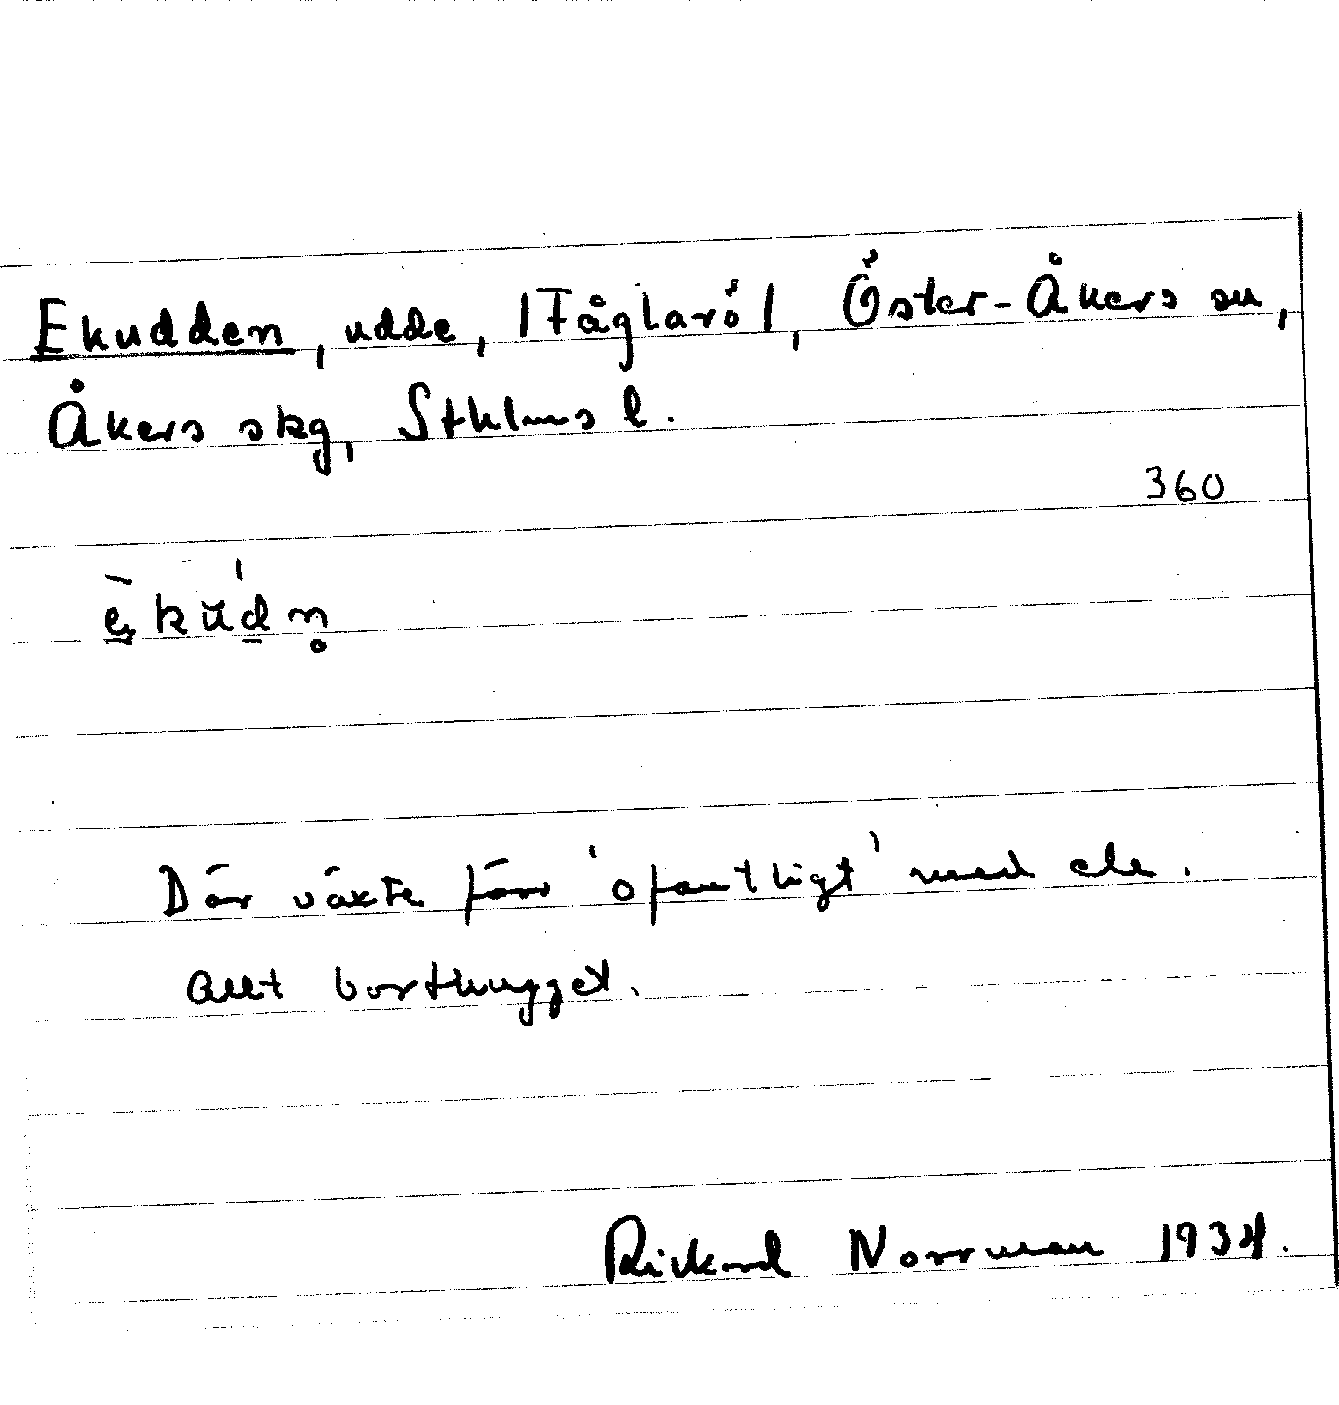 Ekudden, udde, /Fåglarö/, Öster-Åkers sn,
Åkers skg, Sthlms l.
360
è̱kŭḏn̥
Där växte förr 'ofantligt' med ek.
Allt borthugget.
Rickard Norrman 1934.